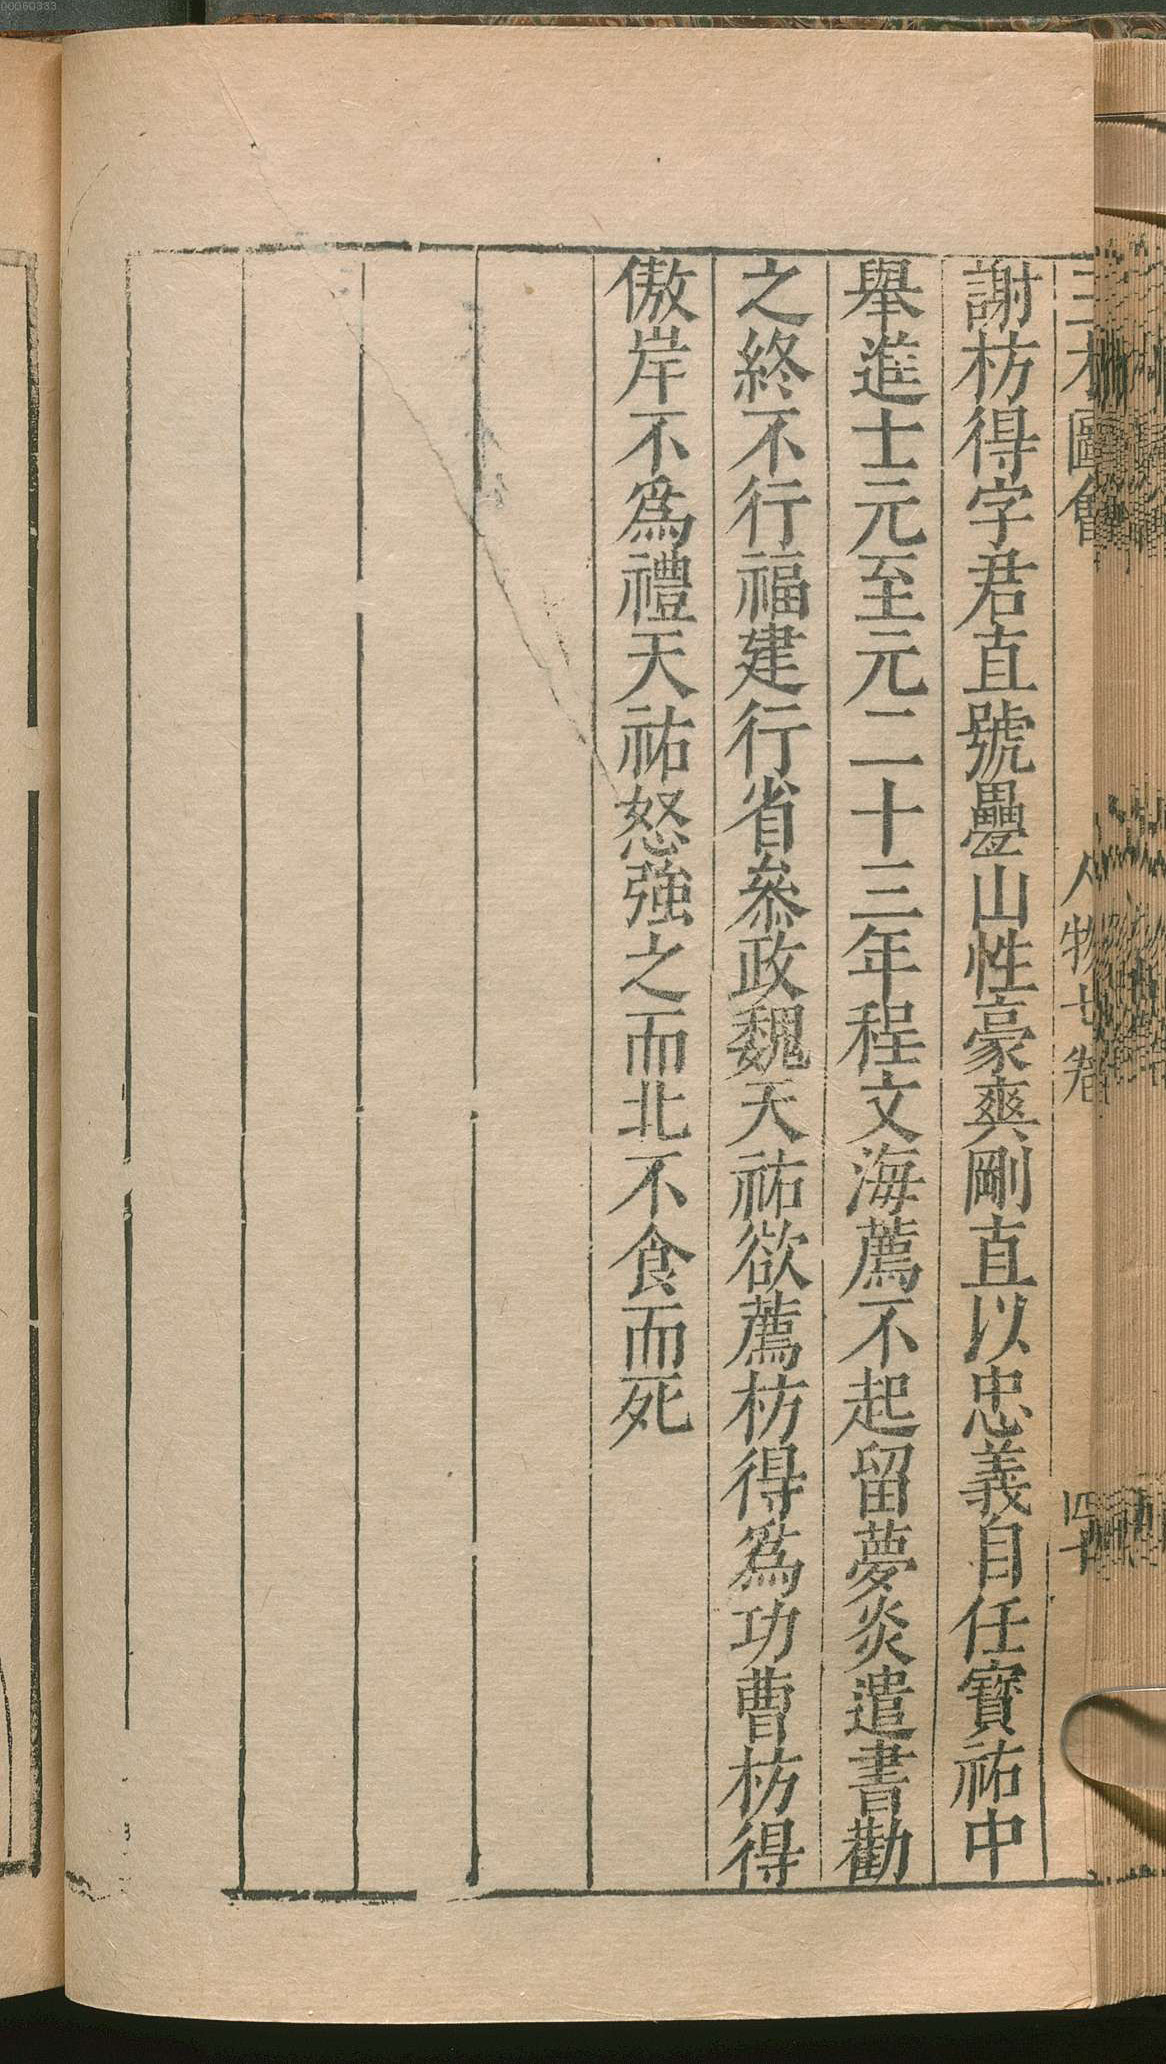 三才圖會 人物七卷 四十
謝枋得字君直號疊山性豪爽剛直以忠義自任寶祐中
舉進士元至元二十三年程文海薦不起留夢炎遣書勸
之終不行福建行省叅政魏天祐欲薦枋得爲功曹枋得
傲岸不爲禮天祐怒強之而北不食而死
00060333